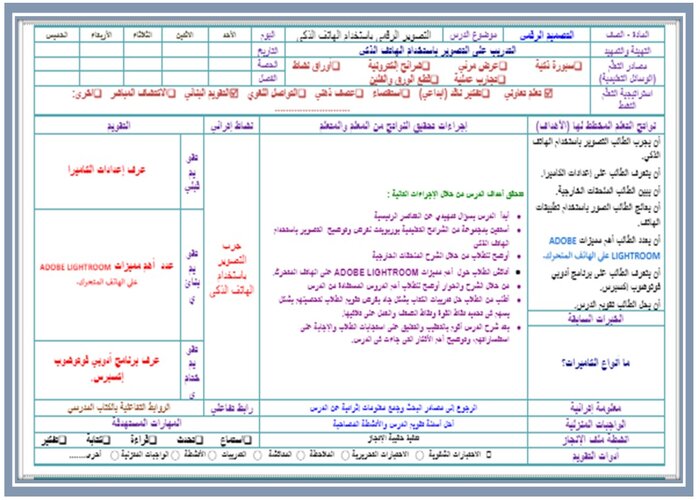 المادة - الصف
التصميم الرقمي
موضوع الدرس
التصوير الرقمي باستخدام الهاتف الذكي
اليوم
الأحد
الاثنين
الثلاثاء
الأربعاء
الخميس
التهيئة والتمهيد
التدريب على التصوير باستخدام الهاتف الذكي
التاريخ
مصادر التعلم
(الوسائل التعليمية)
❑سبورة ذكية ❑عرض مرئي ❑شرائح إلكترونية ❑أوراق نشاط
❑تجارب عملية ❑قطع الورق والفلين
الحصة
الفصل
استراتيجية التعلم
النشط
☑ تعلم تعاوني ❑تفكير ناقد (إبداعي) ❑استقصاء ❑عصف ذهني ❑التواصل اللغوي ☑التقويم البنائي ❑الاكتشاف المباشر ❑أخرى:
نواتج التعلم المخطط لها (الأهداف)
إجراءات تحقيق النواتج من المعلم والمتعلم
نشاط إثرائي
التقويم
أن يجرب الطالب التصوير باستخدام الهاتف
الذكي.
أن يتعرف الطالب على إعدادات الكاميرا.
أن يبين الطالب الملحقات الخارجية.
أن يعالج الطالب الصور باستخدام تطبيقات
الهاتف.
أن يعدد الطالب أهم مميزات ADOBE
LIGHTROOM على الهاتف المتحرك.
أن يتعرف الطالب على برنامج أدوبي
فوتوشوب إكسبرس.
أن يحل الطالب تقويم الدرس.
الخبرات السابقة
ما أنواع الكاميرات؟
تتحقق أهداف الدرس من خلال الإجراءات التالية :
• أبدأ الدرس بسؤال تمهيدي عن العناصر الرئيسية
• أستعين بمجموعة من الشرائح التعليمية بوربوينت لعرض وتوضيح التصوير باستخدام
الهاتف الذكي
• أوضح للطلاب من خلال الشرح الملحقات الخارجية
• أناقش الطلاب حول أهم مميزات ADOBE LIGHTROOM على الهاتف المتحرك.
• من خلال الشرح والحوار أوضح للطلاب أهم الدروس المستفادة من الدرس
• أطلب من الطلاب حل تدريبات الكتاب بشكل جاد بغرض تقويم الطلاب لتحصيلهم بشكل
يسهم في تحديد نقاط القوة ونقاط الضعف والعمل على تلافيها.
• بعد شرح الدرس أقوم بالتعقيب والتعليق على استجابات الطلاب والإجابة على
استفساراتهم، وتوضيح أهم الأفكار التي جاءت في الدرس.
جرب
التصوير
باستخدام
الهاتف الذكي
تقو
يم
قبلي
عرف إعدادات الكاميرا
تقو
يم
بنائ
ي
عدد أهم مميزات ADOBE LIGHTROOM
على الهاتف المتحرك.
تقو
يم
ختام
ي
عرف برنامج أدوبي فوتوشوب
إكسبرس.
معلومة إثرائية
الرجوع إلى مصادر البحث وجمع معلومات إثرائية عن الدرس
رابط تفاعلي
الروابط التفاعلية بالكتاب المدرسي
الواجبات المنزلية
أحل أسئلة تقويم الدرس والأنشطة المصاحبة
المهارات المستهدفة
أنشطة ملف الإنجاز
تنفيذ حقيبة الإنجاز
❑استماع ❑تحدث ❑قراءة ❑كتابة ❑تفكير
أدوات التقويم
❑ الاختبارات الشفوية ○ الاختبارات التحريرية ○ الملاحظة ○ المناقشة ○ التدريبات ○ الأنشطة ○ الواجبات المنزلية ○ أخرى.....